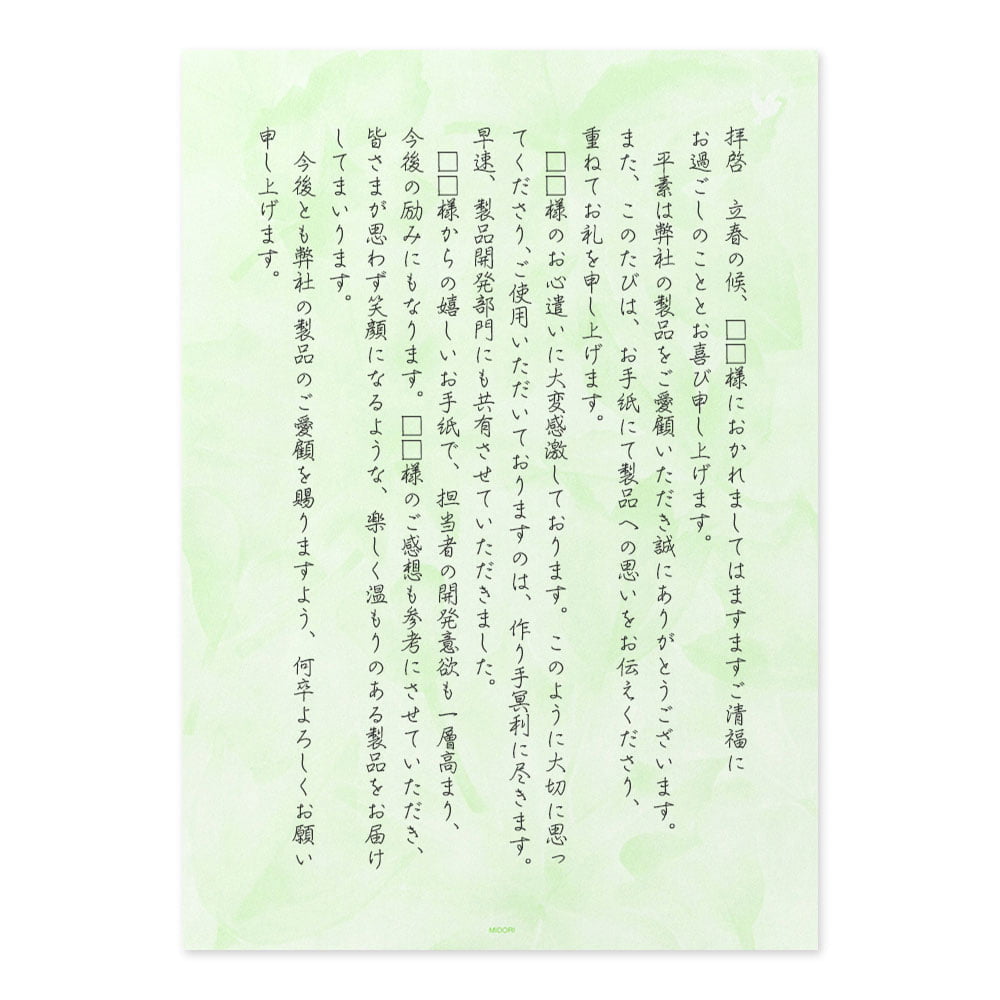 拝啓　立春の候、□□様におかれましてはますますご清福に
お過ごしのこととお喜び申し上げます。
　平素は弊社の製品をご愛顧いただき誠にありがとうございます。
また、このたびは、お手紙にて製品への思いをお伝えくださり、
重ねてお礼を申し上げます。
　□□様のお心遣いに大変感激しております。このように大切に思っ
てくださり、ご使用いただいておりますのは、作り手冥利に尽きます。
早速、製品開発部門にも共有させていただきました。
　□□様からの嬉しいお手紙で、担当者の開発意欲も一層高まり、
今後の励みにもなります。□□様のご感想も参考にさせていただき、
皆さまが思わず笑顔になるような、楽しく温もりのある製品をお届け
してまいります。
　今後とも弊社の製品のご愛顧を賜りますよう、何卒よろしくお願い
申し上げます。
MIDORI